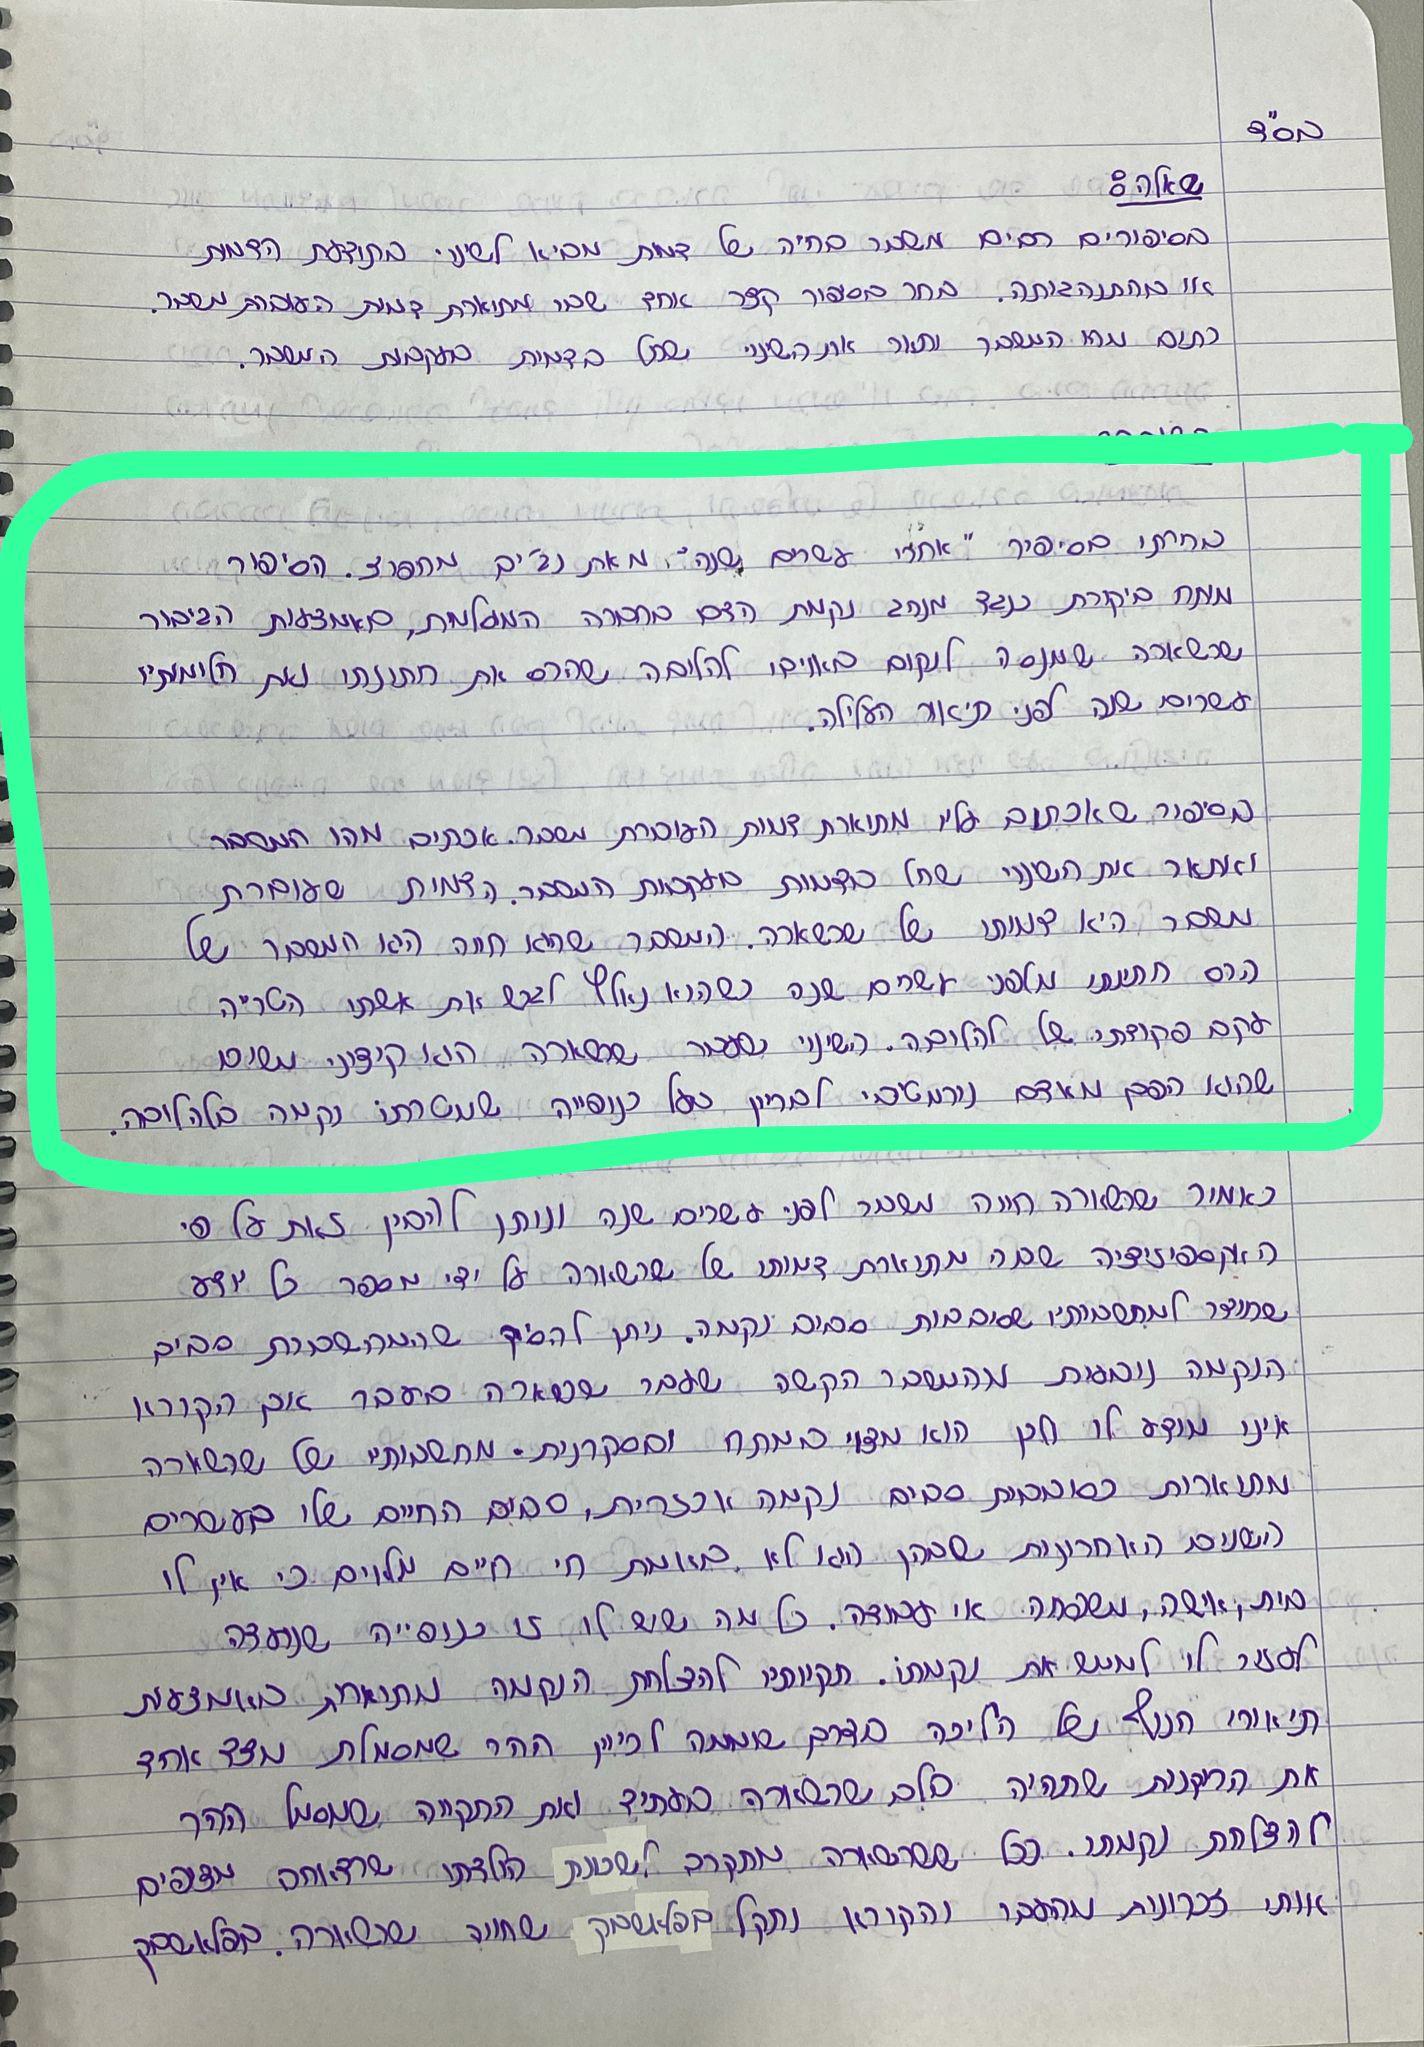 בס"ד
שאלה:
בסיפורים רבים משבר בחייה של דמות מביא לשינוי בתודעת הדמות
או בהתנהגותה. בחר בסיפור קצר אחד שבו מתוארת דמות העוברת משבר.
כתוב מהו המשבר ותאר את השינוי שחל בדמות בעקבות המשבר.
בחרתי בסיפור "אחרי עשרים שנה" מאת נג'יב מחפוז. הסיפור
מותח ביקורת כנגד מנהג נקמת הדם בחברה המוסלמית, באמצעות הגיבור
שרשארה שמנסה לנקום באויבו להלובה שהרס את חתונתו ואת חלומותיו
עשרים שנה לפני תיאור העלילה.
בסיפור שאכתוב עליו מתוארת דמות העוברת משבר. אכתוב מהו המשבר
ואתאר את השינוי שחל בדמות בעקבות המשבר. הדמות שעוברת
משבר היא דמותו של שרשארה. המשבר שהוא חווה הוא המשבר של
הרס חתונתו מלפני עשרים שנה כשהוא נאלץ לגרש את אשתו הטרייה
עקב פקודתו של להלובה. השינוי שעבר שרשארה הוא קיצוני משום
שהוא הפך מאדם נורמטיבי לבריון בעל כנופייה שמטרתו נקמה בלהלובה.
כאמור שרשארה חווה משבר לפני עשרים שנה וניתן להבין זאת על פי
האקספוזיציה שבה מתוארת דמותו של שרשארה על ידי מספר כל יודע
שחודר למחשבותיו שסובבות סביב נקמה. ניתן להסיק שהמחשבות סביב
הנקמה נובעות מהמשבר הקשה שעבר שרשארה בעבר אך הקורא
אינו מודע לו ולכן הוא מצוי במתח ובסקרנות. מחשבותיו של שרשארה
מתוארות כסובבות סביב נקמה אכזרית, סביב החיים שלו בעשרים
השנים האחרונות שבהן הוא לא באמת חי חיים מלאים כי אין לו
בית, אישה, משפחה או עבודה. כל מה שיש לו זו כנופייה שנועדה
לעזור לו לממש את נקמתו. תקוותיו להצלחת הנקמה מתוארות באמצעות
תיאורי הנוף של הליכה בדרך שוממה לכיוון ההר שמסמלת מצד אחד
את הריקנות שתהיה בלב שרשארה בעתיד ואת התקווה שמסמל ההר
להצלחת נקמתו. ככל ששרשארה מתקרב לשכונת הולדתו שרדאחה מציפים
אותו זכרונות מהעבר והקורא נתקל בפלאשבק שחווה שרשארה. בפלאשבק